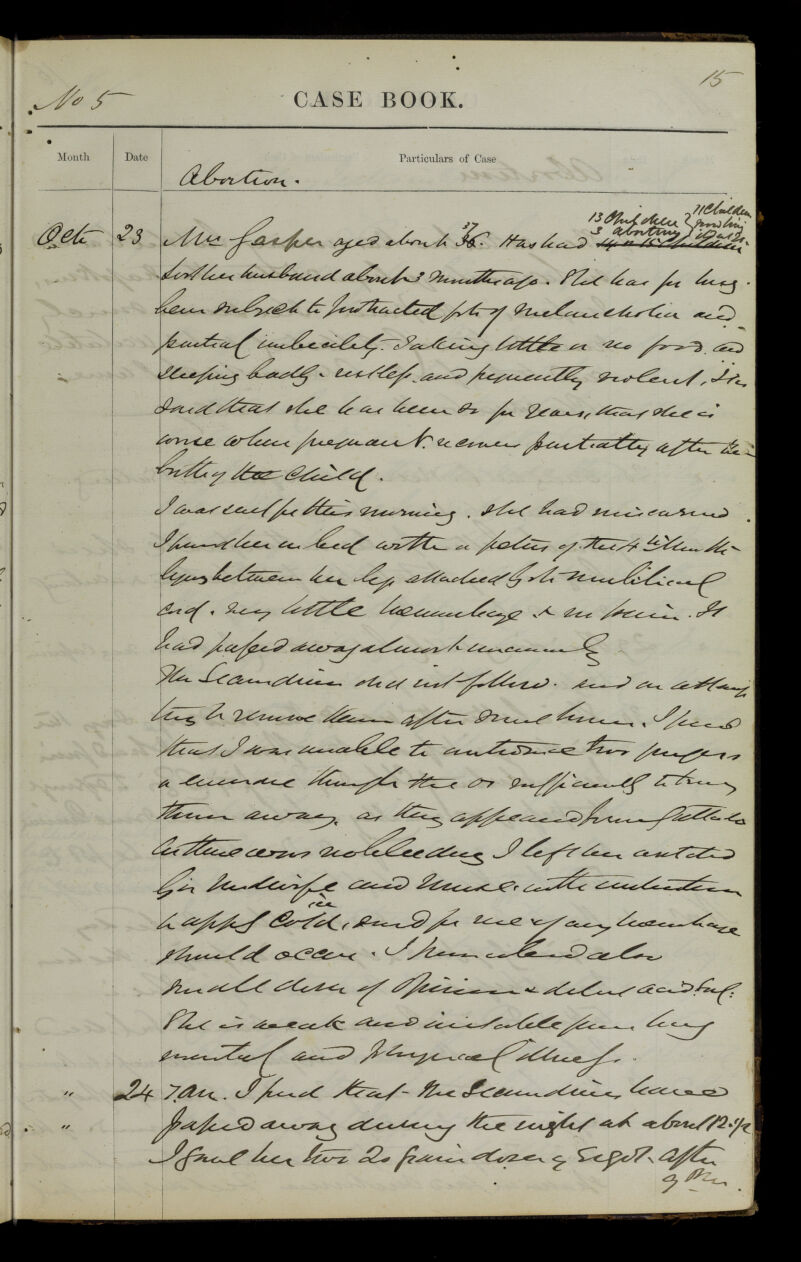 15
No 5
CASE BOOK.
Month Date Particulars of Case
Abortion.
13 Children 11 Children
3 abortions now living
Oct 23 Mrs Gasper aged about 37 36. Has had 14 or 15 Children
lost her husband about 3 months ago. She has for long
been subject to protracted fits of melancholia and
partial imbecility. Taking little or no food and
sleeping badly. restless and frequently violent. It is
said that she has been so for years, that she is
worse when pregnant. recovers partially after the
birth of the Child.
I was sent for this morning. She had miscarried
I found her in bed with a foetus of the 4th month
lying between her legs attached by the umbilical
cord. very little haemorrhage & no pain. It
had passed away almost
The Secundines did not follow. and on attempting
to remove them after some hours, I found
that I was unable to introduce two fingers
through the os sufficiently to bring
them away, as they appeared
As there was no bleeding I left her
midwife and nurse with instructions
to apply ice cold, send for me if any haemorrhage
should occur. I also
small doses of Opium & dilute acid. Sul:
She is weak and irritable from long
mental and physical illness.
" 24 7 am. I find that the Secundines have
" passed away during the night at about 12.½
I gave her two 20 grain doses of Ergot after
9 PM.